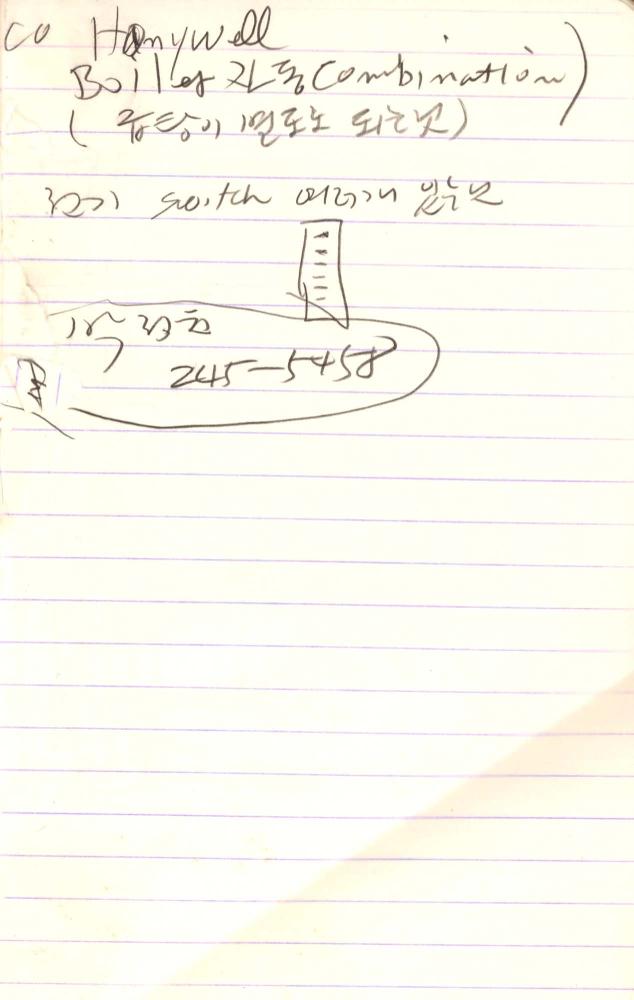 co Honywell
Boiler 자동 Combination)
( 이 별도로 되는것)
전기 switch 여러개 있는것
245-5458